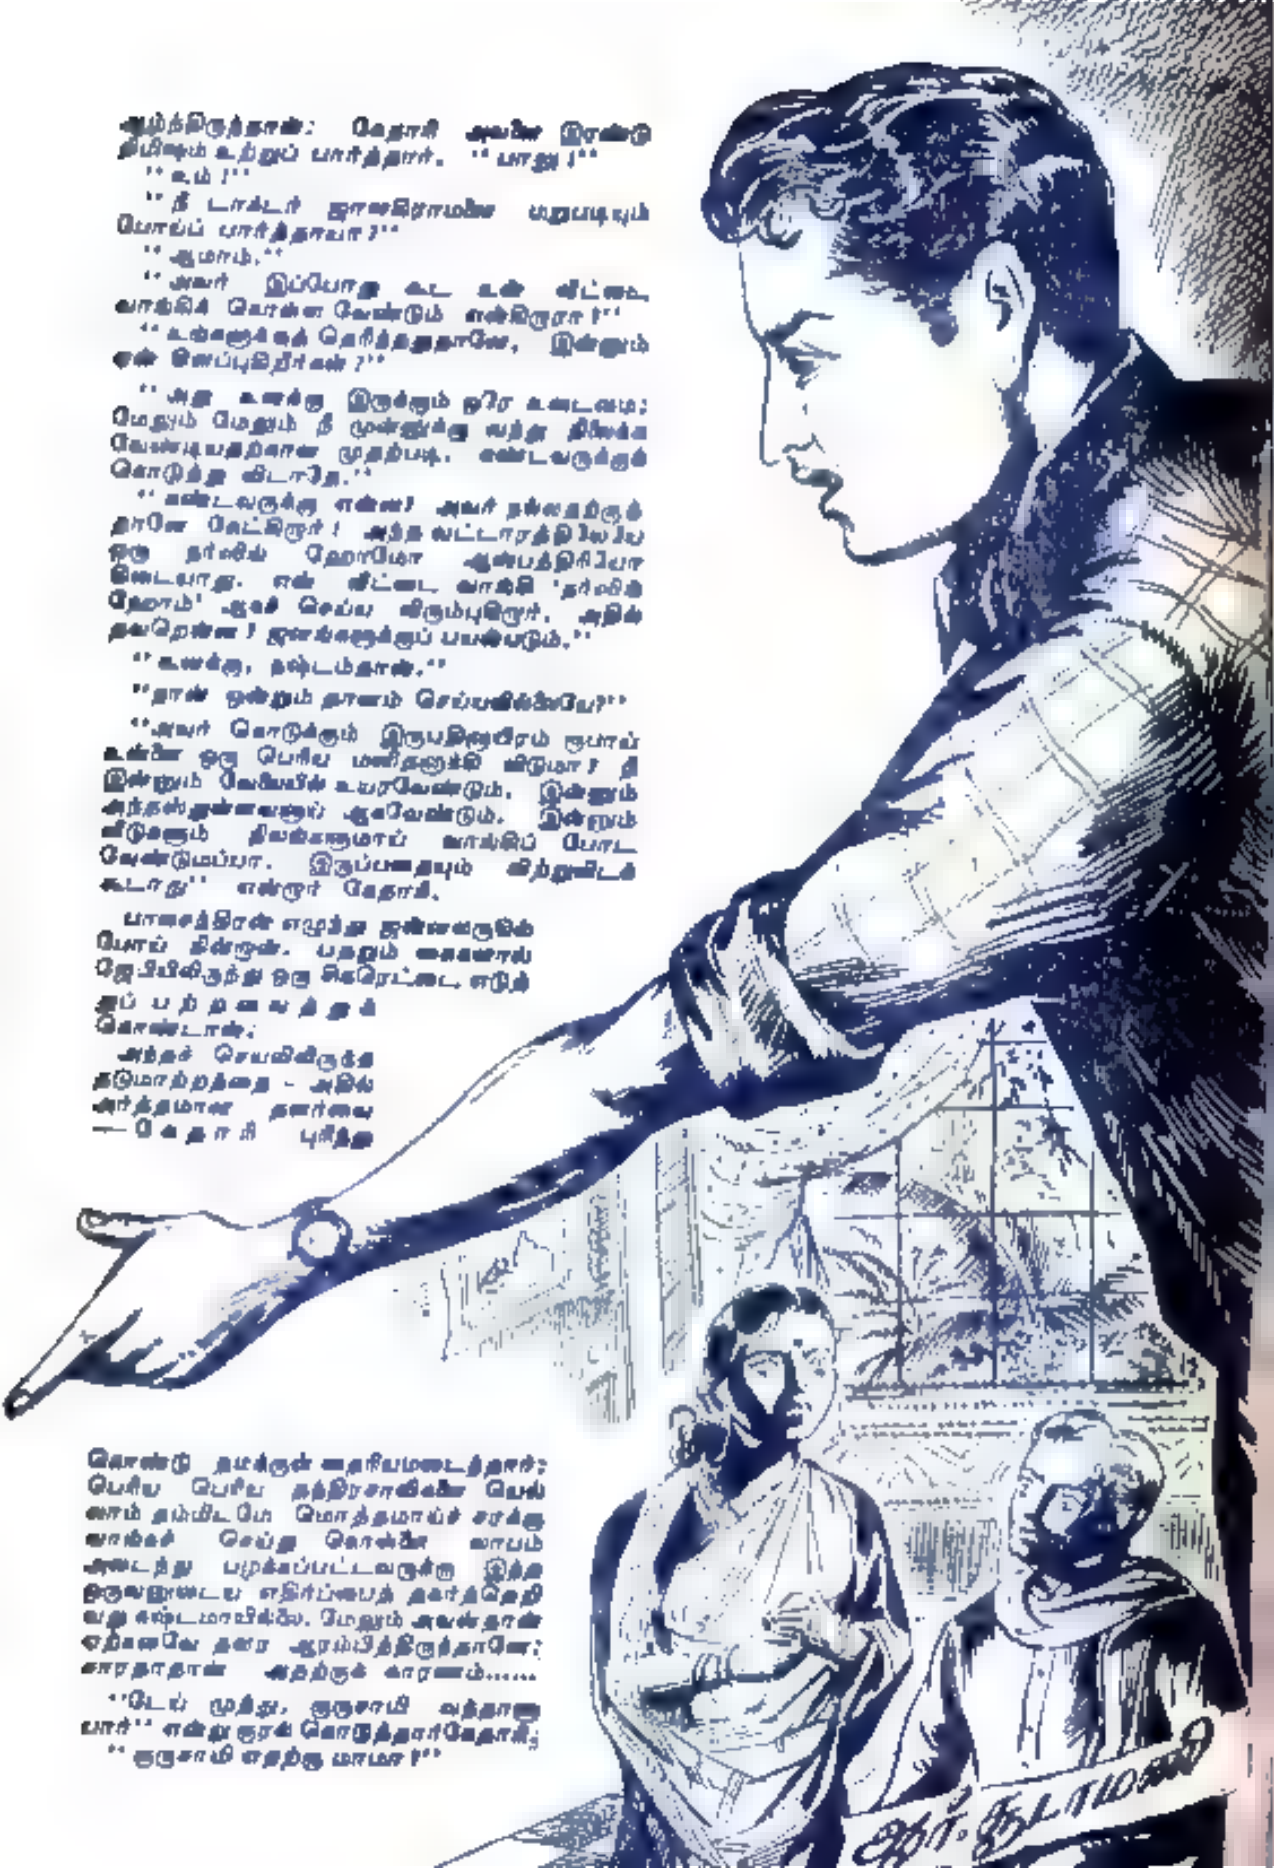 ஆழ்ந்திருந்தான்; கேதாரி அவனை இரண்டு
நிமிஷம் உற்றுப் பார்த்தார். "பாலு!"
"உம்!"
"நீ டாக்டர் ஜானகிராமனை மறுபடியும்
போய்ப் பார்த்தாயா?"
"ஆமாம்."
"அவர் இப்போது கூட உன் வீட்டை
வாங்கிக் கொள்ள வேண்டும் என்கிறாரா?"
"உங்களுக்குத் தெரிந்ததுதானே, இன்னும்
ஏன் கிளப்புகிறீர்கள்?"
"அது உனக்கு இருக்கும் ஒரே உடைமை;
மேலும் மேலும் நீ முன்னுக்கு வந்து நிலைக்க
வேண்டியதற்கான முதற்படி. கண்டவருக்குக்
கொடுத்து விடாதே."
"கண்டவருக்கு என்ன? அவர் நல்லதற்குத்
தானே கேட்கிறார்! அந்த வட்டாரத்திலேயே
ஒரு நர்ஸிங் ஹோமோ ஆஸ்பத்திரியோ
கிடையாது. என் வீட்டை வாங்கி 'நர்ஸிங்
ஹோம்' ஆகச் செய்ய விரும்புகிறார். அதில்
தவறென்ன? ஜனங்களுக்குப் பயன்படும்."
"உனக்கு, நஷ்டம்தான்."
"நான் ஒன்றும் தானம் செய்யவில்லையே?"
"அவர் கொடுக்கும் இருபதினாயிரம் ரூபாய்
உன்னை ஒரு பெரிய மனிதனாக்கி விடுமா? நீ
இன்னும் வேலையில் உயரவேண்டும். இன்னும்
அந்தஸ்துள்ளவனாய் ஆகவேண்டும். இன்னும்
வீடுகளும் நிலங்களுமாய் வாங்கிப் போட
வேண்டுமப்பா. இருப்பதையும் விற்றுவிடக்
கூடாது" என்றார் கேதாரி.
பாலசந்திரன் எழுந்து ஜன்னலருகில்
போய் நின்றான். பதறும் கைகளால்
ஜேபியிலிருந்து ஒரு சிகரெட்டை எடுத்
துப் பற்றவைத்துக்
கொண்டான்;
அந்தச் செயலிலிருந்த
தடுமாற்றத்தை - அதில்
அர்த்தமான தளர்வை
— கேதாரி புரிந்து
கொண்டு தமக்குள் தைரியமடைந்தார்;
பெரிய பெரிய தந்திரசாலிகளை யெல்
லாம் தம்மிடமே மொத்தமாய்ச் சரக்கு
வாங்கச் செய்து கொள்ளை லாபம்
அடைந்து பழக்கப்பட்டவருக்கு இந்த
ஒருவனுடைய எதிர்ப்பைத் தகர்த்தெறி
வது கஷ்டமாயில்லை. மேலும் அவன்தான்
ஏற்கனவே தளர ஆரம்பித்திருந்தானே;
சாரதாதான் அதற்குக் காரணம்......
"டேய் முத்து, குருசாமி வந்தானா
பார்" என்று குரல் கொடுத்தார் கேதாரி;
"குருசாமி எதற்கு மாமா?"